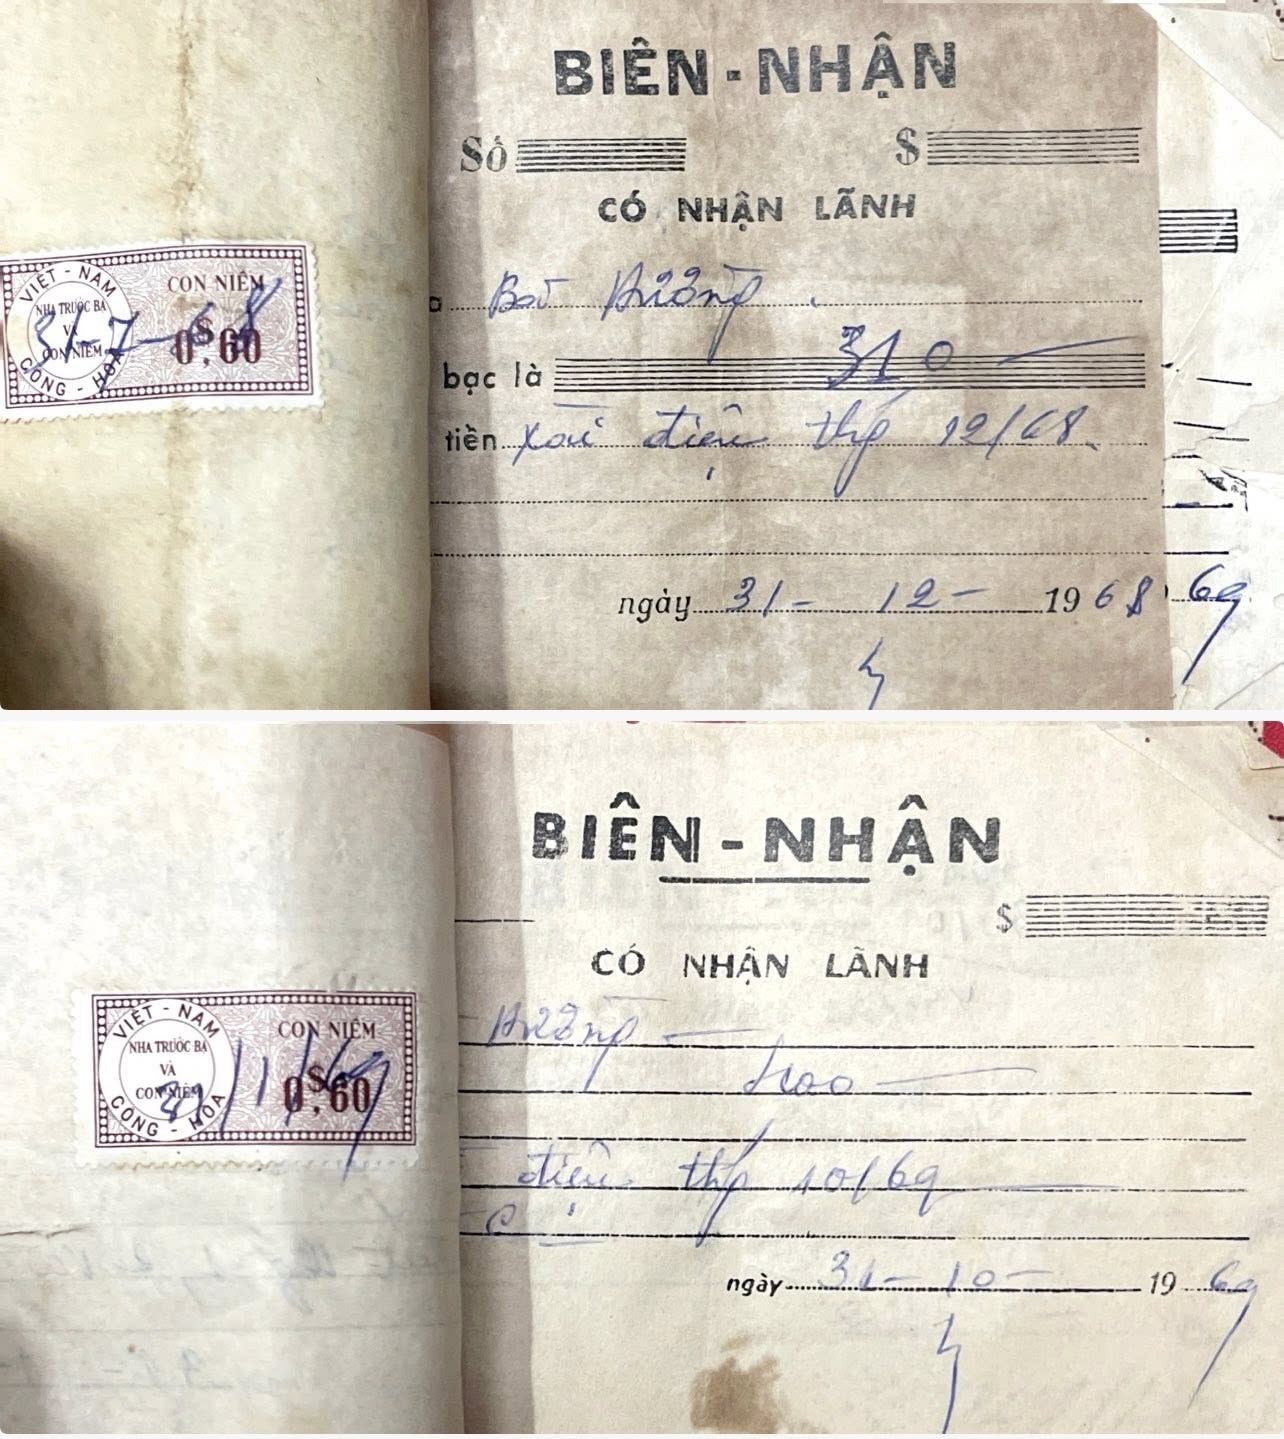 BIÊN - NHẬN
Số $
CÓ NHẬN LÃNH
VIỆT - NAM
CON NIÊM
NHA TRƯỚC BẠ
VÀ
CON NIÊM
CỘNG - HOÀ
0$,60
31-7-68
a Hường
bạc là 310
tiền xài điện thg 12/68
ngày 31 - 12 - 1968
69
BIÊN - NHẬN
$
CÓ NHẬN LÃNH
VIỆT - NAM
CON NIÊM
NHA TRƯỚC BẠ
VÀ
CON NIÊM
CỘNG - HOÀ
0$,60
Hường
400
điện thg 10/69
ngày 31 - 10 - 1969